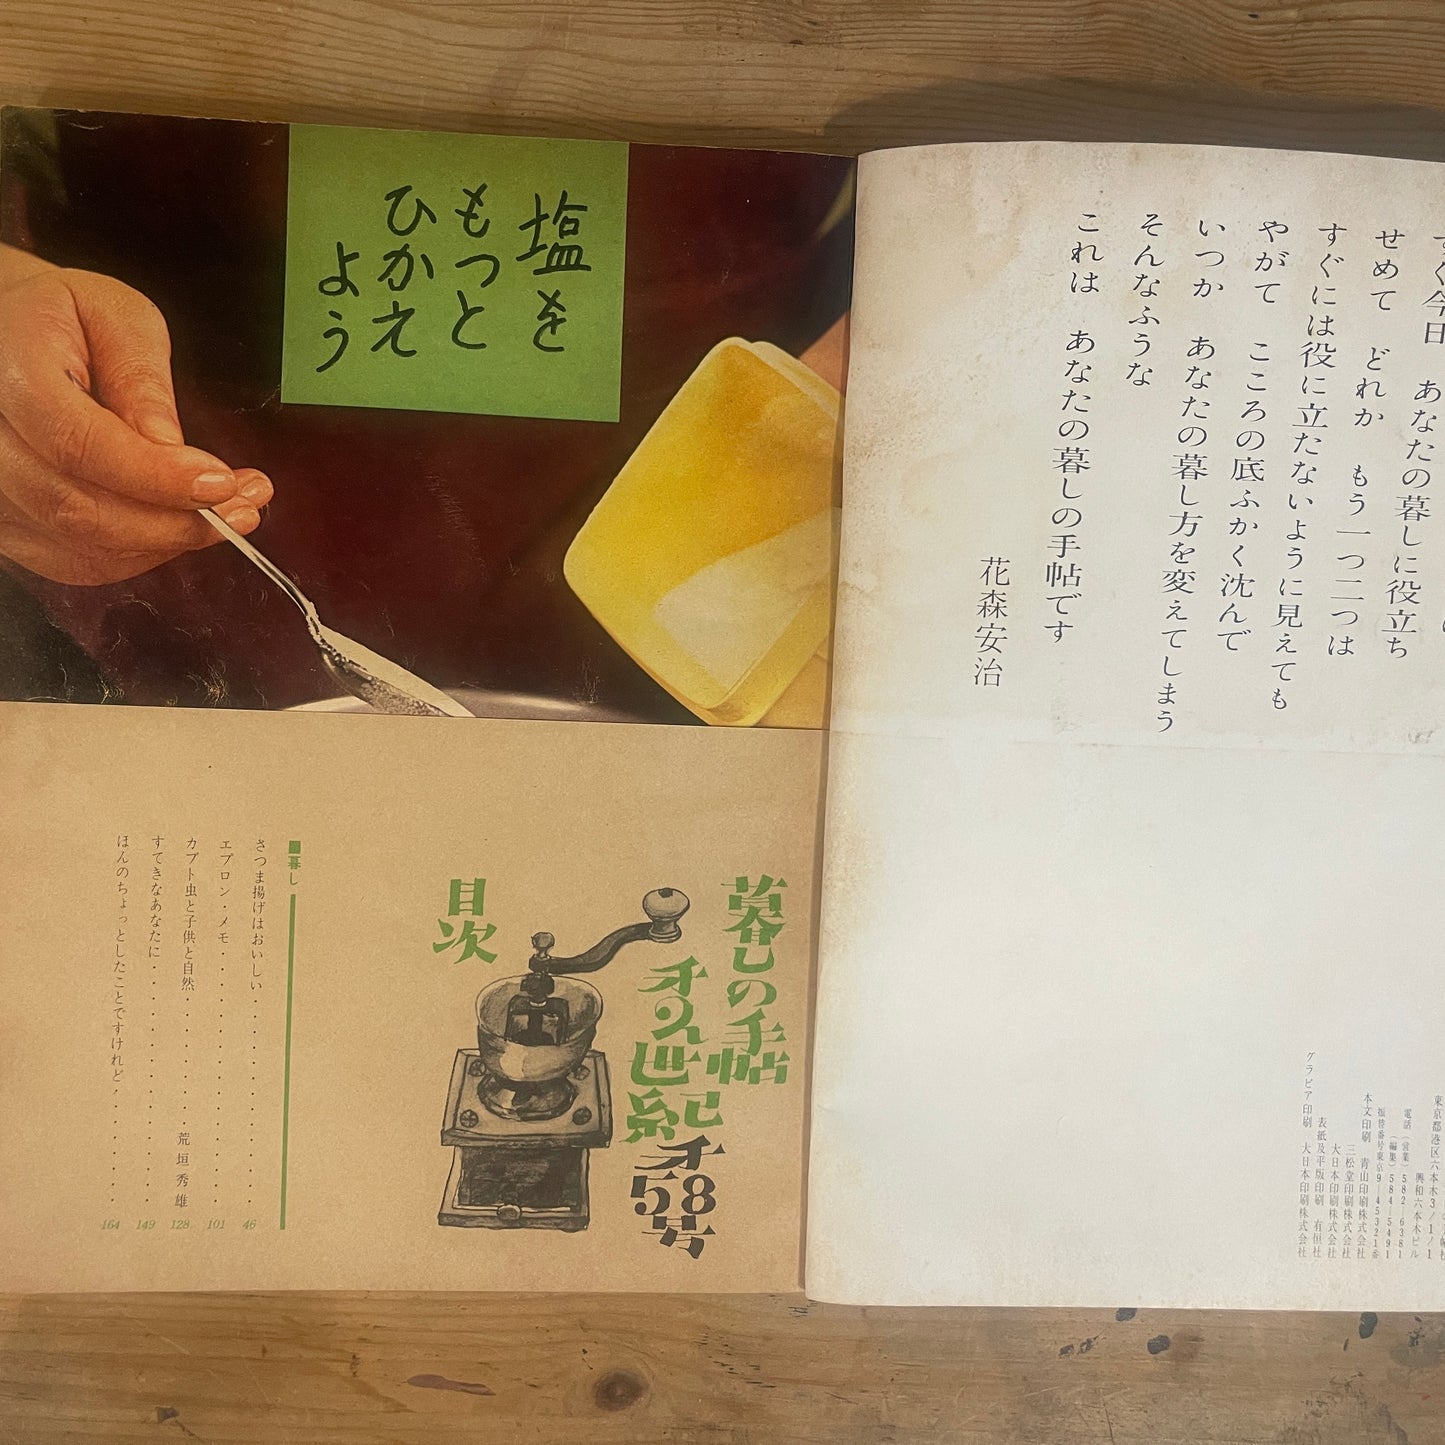 すぐ今日 あなたの暮しに役立ち
せめて どれか もう一つ二つは
すぐには役に立たないように見えても
やがて こころの底ふかく沈んで
いつか あなたの暮し方を変えてしまう
そんなふうな
これは あなたの暮しの手帖です
花森安治
東京都港区六本木3ノ1ノ1
興和六本木ビル
電話(営業)582-6381
(編集)584-5491
振替番号東京9-45321番
本文印刷 青山印刷株式会社
三松堂印刷株式会社
大日本印刷株式会社
表紙及平版印刷 有恒社
グラビア印刷 大日本印刷株式会社
塩を
もっと
ひかえ
よう
暮しの手帖
第2世紀
第58号
目次
■暮し
さつま揚げはおいしい 46
エプロン・メモ 101
カブト虫と子供と自然 荒垣秀雄 128
すてきなあなたに 149
ほんのちょっとしたことですけれど 164